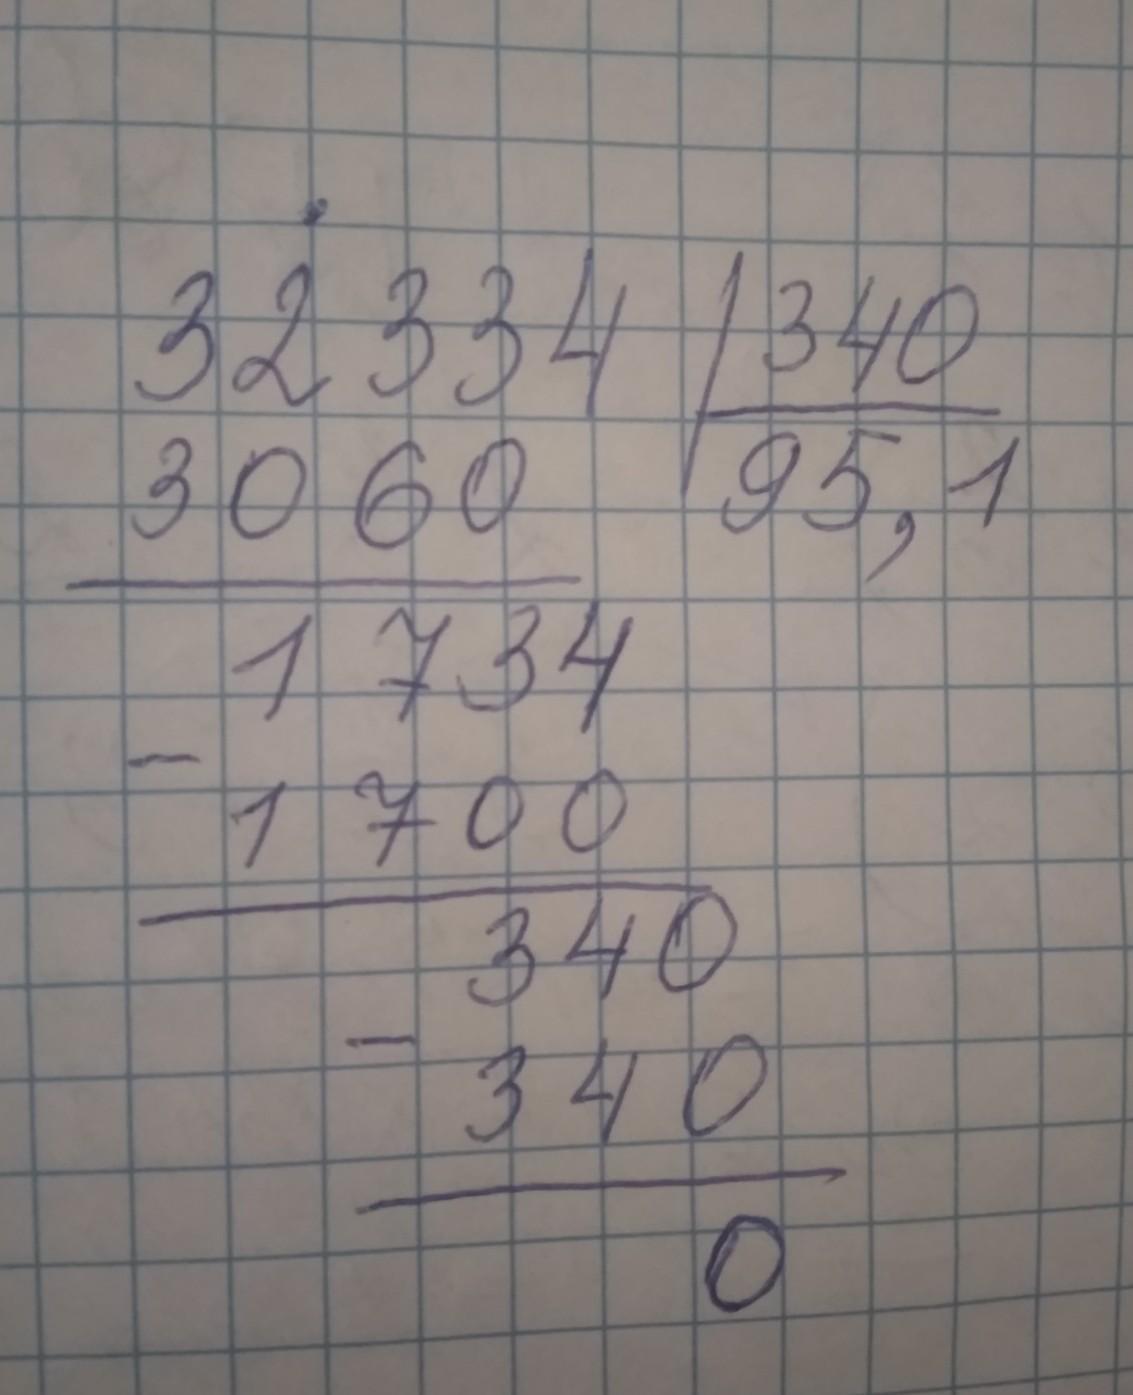 32334 340
3060 95,1
1734
- 1700
340
- 340
0